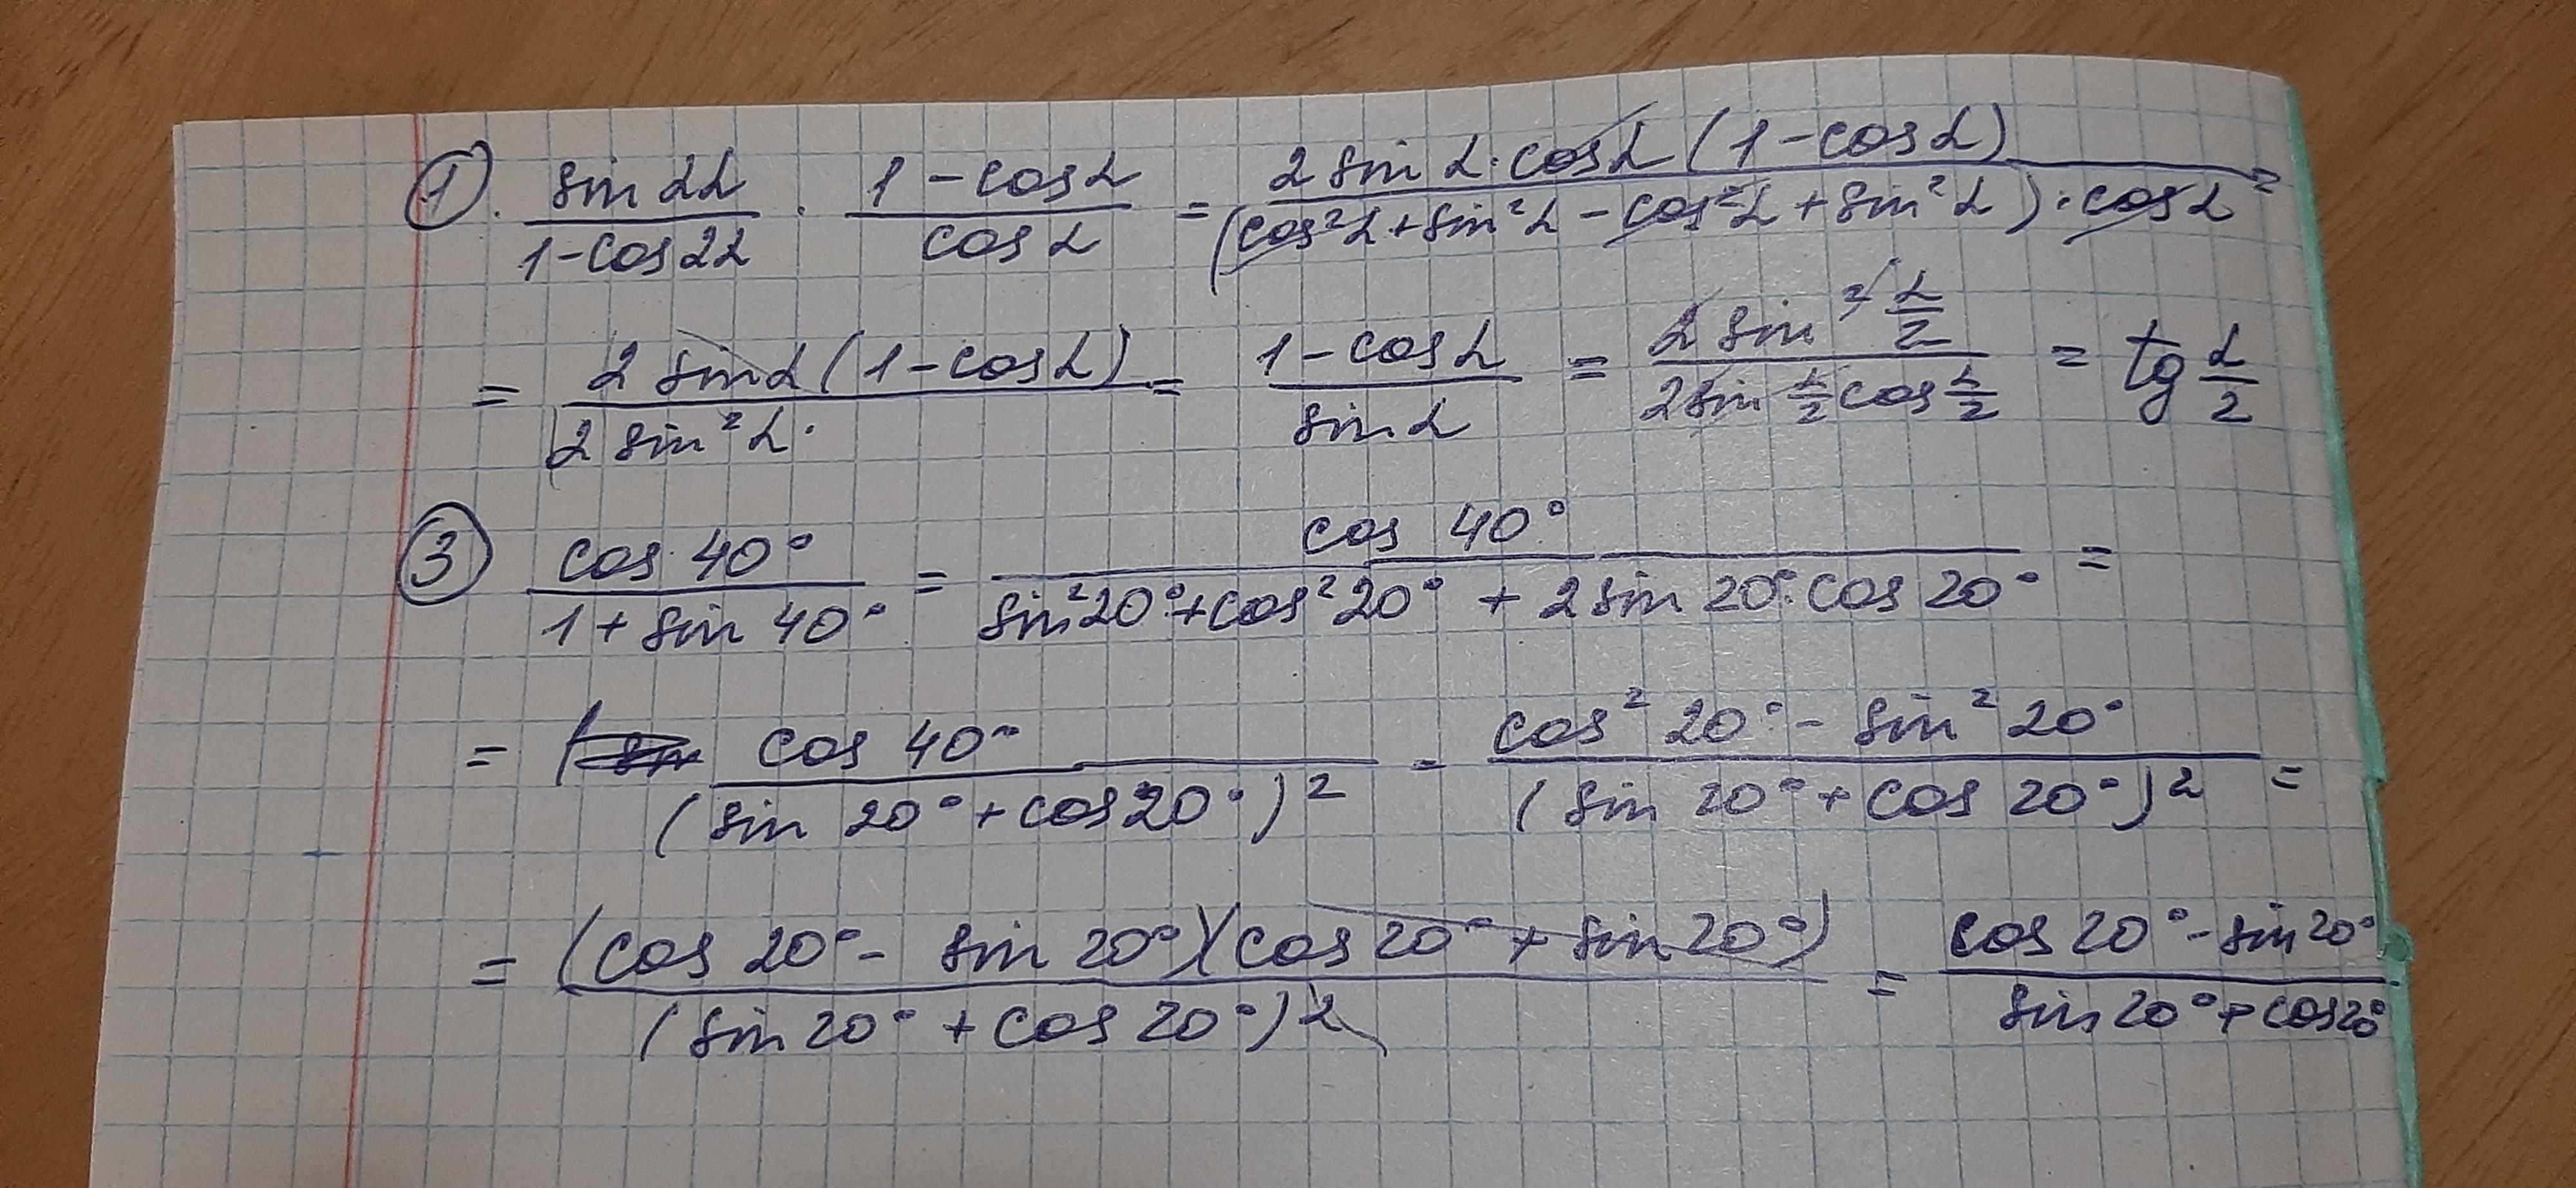 ① sin 2α / 1-cos 2α · 1-cos α / cos α = 2 sin α · cos α (1-cos α) / (cos²α + sin²α - cos²α + sin²α) · cos α =
= 2 sin α (1-cos α) / 2 sin²α · = 1-cos α / sin α = 2 sin² α/2 / 2 sin α/2 cos α/2 = tg α/2
③ cos 40° / 1 + sin 40° = cos 40° / sin² 20° + cos² 20° + 2 sin 20° · cos 20° =
= cos 40° / (sin 20° + cos 20°)² = cos² 20° - sin² 20° / (sin 20° + cos 20°)² =
= (cos 20° - sin 20°)(cos 20° + sin 20°) / (sin 20° + cos 20°)² = cos 20° - sin 20° / sin 20° + cos 20°